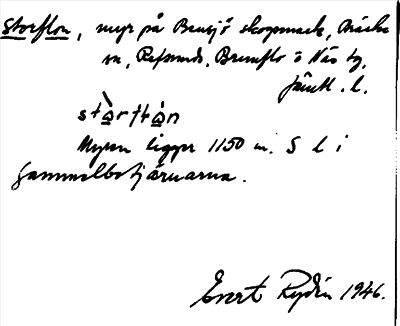 Storflon, myr på Bensjö skogsmark, Bräcke
sn, Refsunds, Brunflo o Näs tg,
Jämtl. l.
stårflån
Myren ligger 1150 m. S l i
Gammelbotjärnarna.
Evert Rydén 1946.